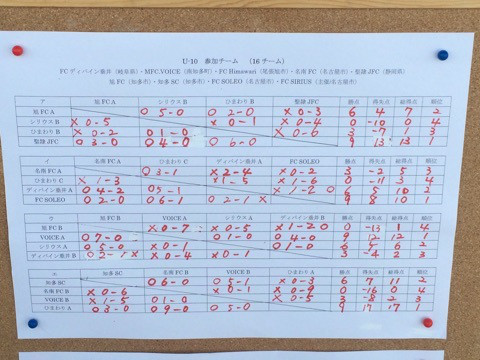 U-10 参加チーム （16チーム）
FCディバイン垂井（岐阜県）・MFC.VOICE（南知多町）・FC Himawari（尾張旭市）・名南FC（名古屋市）・聖隷JFC（静岡県）
旭FC（知多市）・知多SC（知多市）・FC SOLEO（名古屋市）・FC SIRIUS（主催/名古屋市）
ア 旭FC A シリウスB ひまわりB 聖隷JFC 勝点 得失点 総得点 順位
旭FC A O 5-0 O 2-0 X 0-3 6 4 7 2
シリウスB X 0-5 X 0-1 X 0-4 0 -10 0 4
ひまわりB X 0-2 O 1-0 X 0-6 3 -7 1 3
聖隷JFC O 3-0 O 4-0 O 6-0 9 13 13 1
イ 名南FC A ひまわりC ディバイン垂井A FC SOLEO 勝点 得失点 総得点 順位
名南FC A O 3-1 X 2-4 X 0-2 3 -2 5 3
ひまわりC X 1-3 X 1-5 X 1-6 0 -11 3 4
ディバイン垂井A O 4-2 X 1-2 O 6 5 10 2
FC SOLEO O 2-0 O 6-1 O 2-1 X 9 8 10 1
ウ 旭FC B VOICE A シリウスA ディバイン垂井B 勝点 得失点 総得点 順位
旭FC B X 0-7 X 0-5 X 1-2 O 0 -13 1 4
VOICE A O 7-0 O 1-0 O 4-0 9 12 12 1
シリウスA O 5-0 X 0-1 O 1-0 6 5 6 2
ディバイン垂井B O 2-1 X X 0-4 X 0-1 3 -4 2 3
エ 知多SC 名南FC B VOICE B ひまわりA 勝点 得失点 総得点 順位
知多SC O 6-0 O 5-1 X 0-3 6 7 11 2
名南FC B X 0-6 X 0-1 X 0-9 0 -16 0 4
VOICE B X 1-5 O 1-0 X 0-5 3 -8 2 3
ひまわりA O 3-0 O 9-0 O 5-0 9 17 17 1